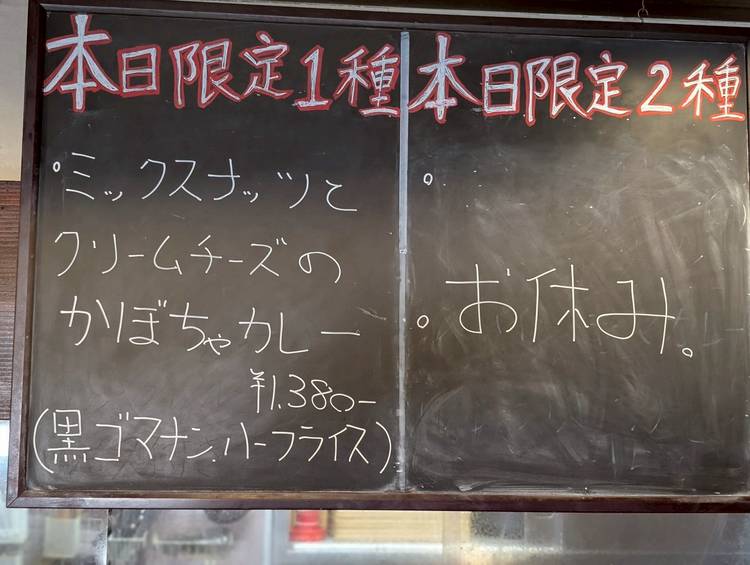 本日限定1種
。ミックスナッツと
クリームチーズの
かぼちゃカレー
¥1.380-
(黒ゴマナン.ハーフライス)
本日限定2種
。
。お休み。